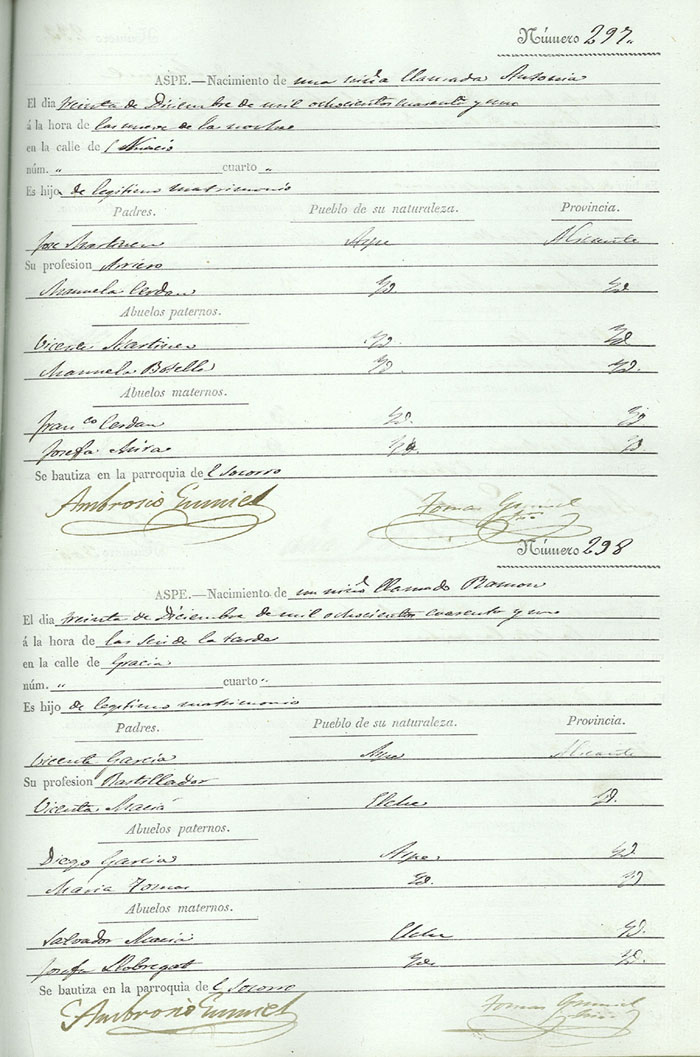 Número 297.
ASPE.—Nacimiento de una niña llamada Antonia
El dia treinta de Diciembre de mil ochocientos cuarenta y uno
á la hora de las nueve de la noche
en la calle de
núm. " cuarto "
Es hijo de legitimo matrimonio
Padres. Pueblo de su naturaleza. Provincia.
Jose Martinez Aspe Alicante
Su profesion Arriero
Manuela Cerdan Yd. Yd.
Abuelos paternos.
Vicente Martinez Yd. Yd.
Manuela Botella Yd. Yd.
Abuelos maternos.
Franco Cerdan Yd. Yd.
Josefa Mira Yd. Yd.
Se bautiza en la parroquia de l Socorro
Ambrosio Gumiel Tomas Gumiel
Número 298
ASPE.—Nacimiento de un niño llamado Ramon
El dia treinta de Diciembre de mil ochocientos cuarenta y uno
á la hora de las seis de la tarde
en la calle de Gracia
núm. " cuarto "
Es hijo de legitimo matrimonio
Padres. Pueblo de su naturaleza. Provincia.
Vicente Garcia Aspe Alicante
Su profesion Rastillador
Vicenta Maciá Elche Yd.
Abuelos paternos.
Diego Garcia Aspe Yd.
Maria Tomas Yd. Yd.
Abuelos maternos.
Salvador Maciá Elche Yd.
Josefa Llobregat Yd. Yd.
Se bautiza en la parroquia de l Socorro
Ambrosio Gumiel Tomas Gumiel